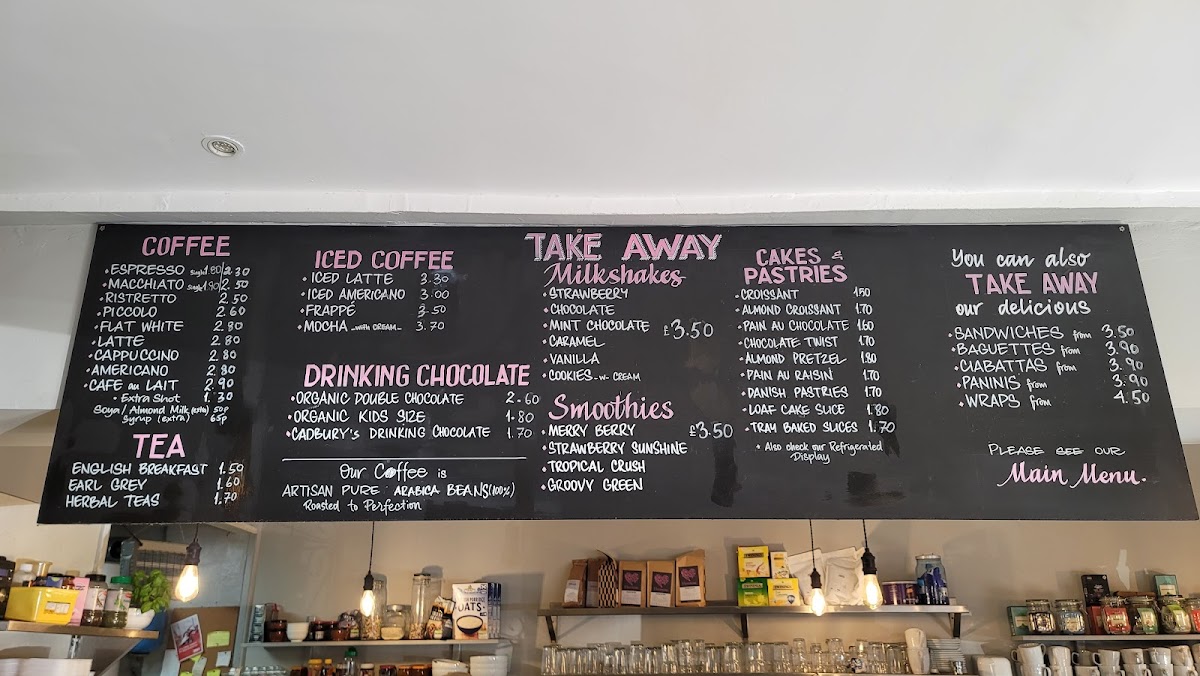 COFFEE
• ESPRESSO sngl 1.80/2.30
• MACCHIATO sngl 1.90/2.50
• RISTRETTO 2.50
• PICCOLO 2.60
• FLAT WHITE 2.80
• LATTE 2.80
• CAPPUCCINO 2.80
• AMERICANO 2.80
• CAFE au LAIT 2.90
• Extra Shot 1.30
Soya/Almond Milk (extra) 50p
Syrup (extra) 65p
TEA
ENGLISH BREAKFAST 1.50
EARL GREY 1.60
HERBAL TEAS 1.70
ICED COFFEE
• ICED LATTE 3.30
• ICED AMERICANO 3.00
• FRAPPÉ 3.50
• MOCHA -with CREAM- 3.70
DRINKING CHOCOLATE
• ORGANIC DOUBLE CHOCOLATE 2.60
• ORGANIC KIDS SIZE 1.80
• CADBURY's DRINKING CHOCOLATE 1.70
Our Coffee is
ARTISAN PURE ARABICA BEANS (100%)
Roasted to Perfection
TAKE AWAY
Milkshakes
• STRAWBERRY
• CHOCOLATE
• MINT CHOCOLATE £3.50
• CARAMEL
• VANILLA
• COOKIES -w- CREAM
Smoothies
• MERRY BERRY £3.50
• STRAWBERRY SUNSHINE
• TROPICAL CRUSH
• GROOVY GREEN
CAKES &
PASTRIES
• CROISSANT 1.50
• ALMOND CROISSANT 1.70
• PAIN AU CHOCOLATE 1.60
• CHOCOLATE TWIST 1.70
• ALMOND PRETZEL 1.80
• PAIN AU RAISIN 1.70
• DANISH PASTRIES 1.70
• LOAF CAKE SLICE 1.80
• TRAY BAKED SLICES 1.70
• Also check our Refrigerated
Display
You can also
TAKE AWAY
our delicious
• SANDWICHES from 3.50
• BAGUETTES from 3.90
• CIABATTAS from 3.90
• PANINIS from 3.90
• WRAPS from 4.50
PLEASE SEE OUR
Main Menu.
OATS